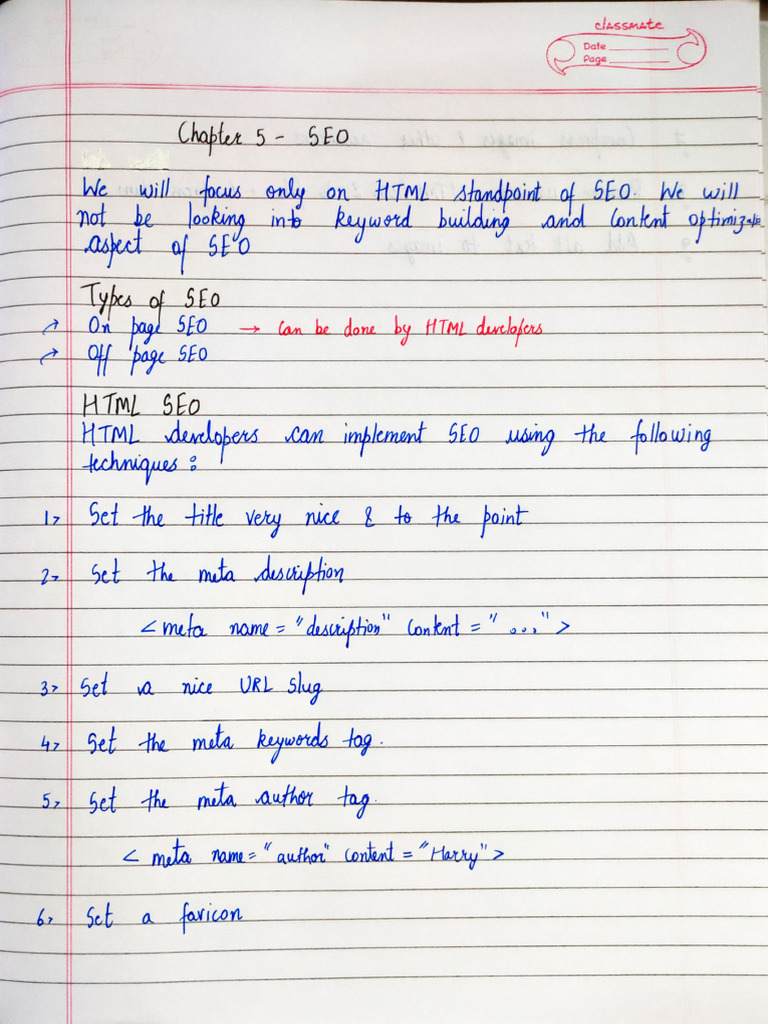 classmate
Date
Page
Chapter 5 - SEO
We will focus only on HTML standpoint of SEO. We will
not be looking into keyword building and content
aspect of SEO
Types of SEO
On page SEO → Can be done by HTML developers
Off page SEO
HTML SEO
HTML developers can implement SEO using the following
techniques :
1> Set the title very nice & to the point
2> Set the meta description
<meta name = "description" content = " ... ">
3> Set a nice URL slug
4> Set the meta keywords tag.
5> Set the meta author tag.
< meta name = "author" content = "Harry">
6> Set a favicon